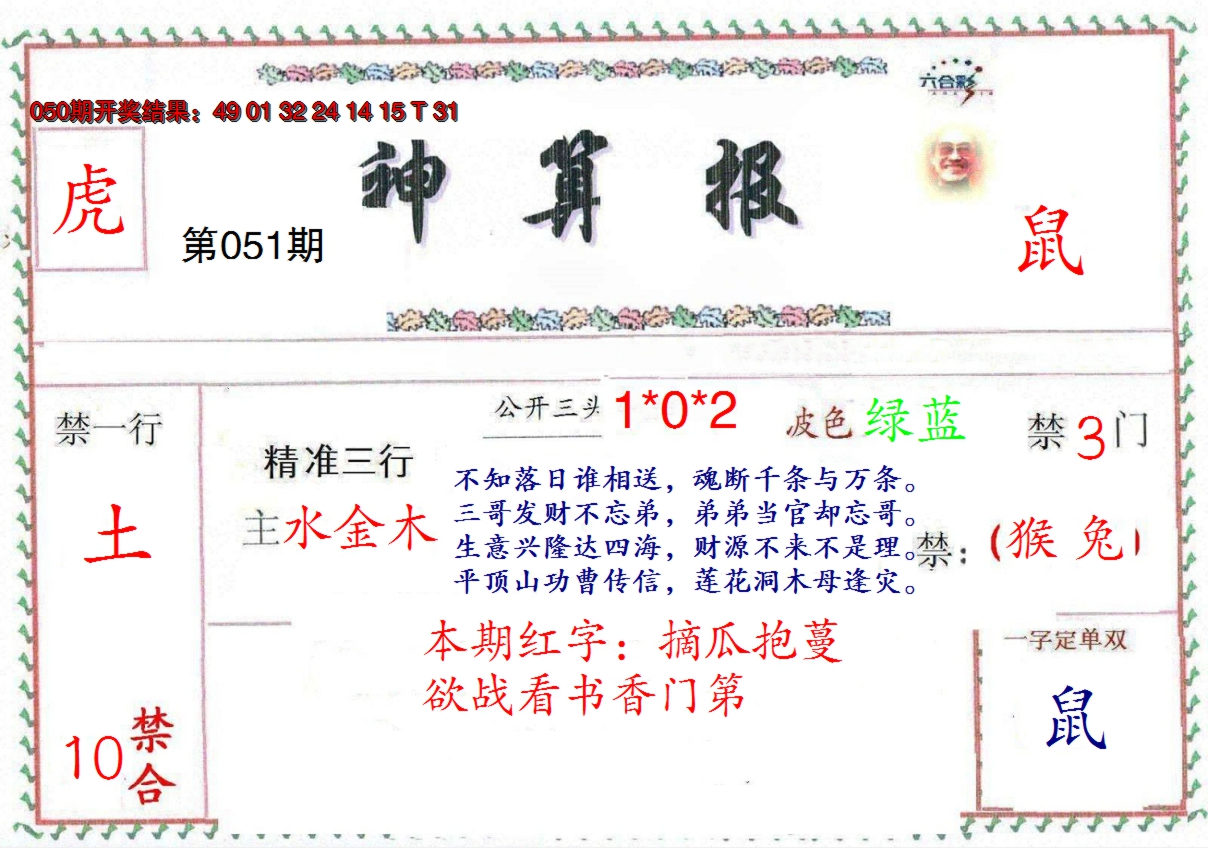 六合彩
050期开奖结果：49 01 32 24 14 15 T 31
虎
神算报
第051期
鼠
禁一行
土
10禁合
精准三行
主水金木
公开三头 1*0*2
波色绿蓝
禁3门
不知落日谁相送，魂断千条与万条。
三哥发财不忘弟，弟弟当官却忘哥。
生意兴隆达四海，财源不来不是理。
平顶山功曹传信，莲花洞木母逢灾。
禁：（猴 兔）
本期红字：摘瓜抱蔓
欲战看书香门第
一字定单双
鼠